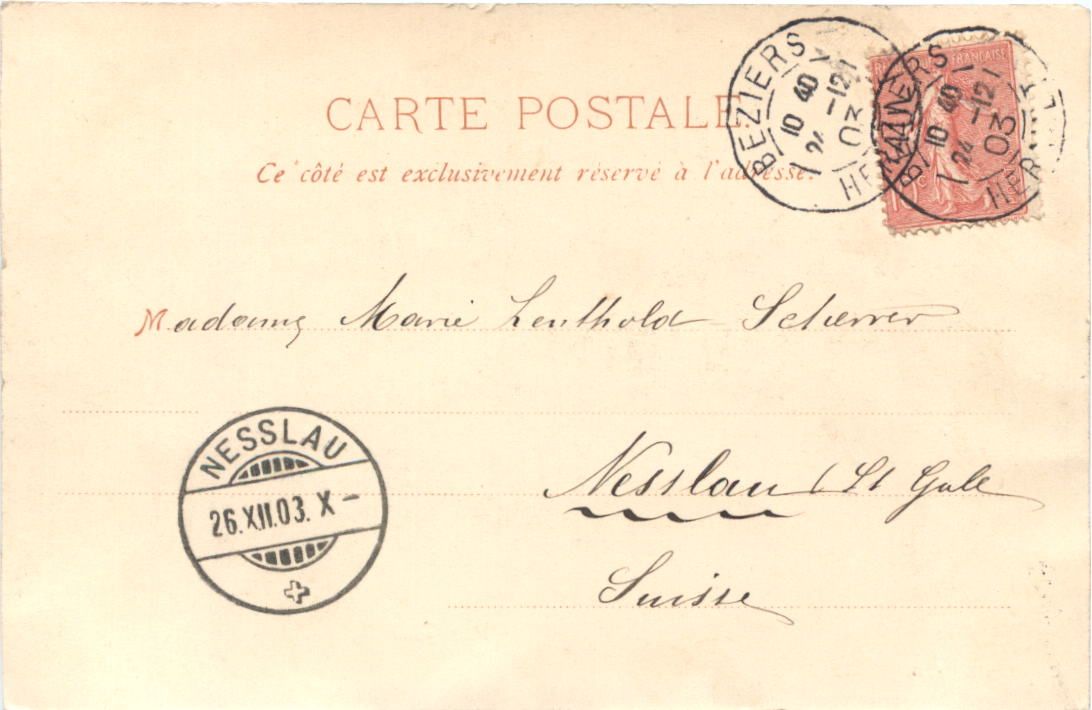 CARTE POSTALE
Ce côté est exclusivement réservé à l'adresse.
BEZIERS
10 40
24 -12
03
HERAULT
BEZIERS
10 40
24 -12
03
HER LT
FRANÇAISE
10 c
Madame Marie Leuthold-Scherrer
Nesslau (St Galle
Suisse
NESSLAU
26.XII.03. X-